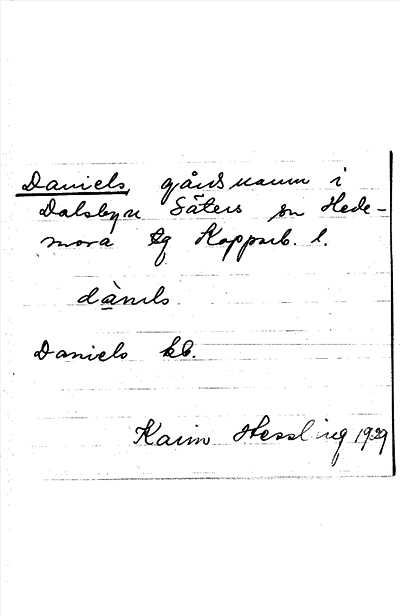 Daniels gårdsnamn i
Dalsbyn Säters sn Hede-
mora tg Kopparb. l.
dànils
Daniels kb.
Karin Hessling 1939